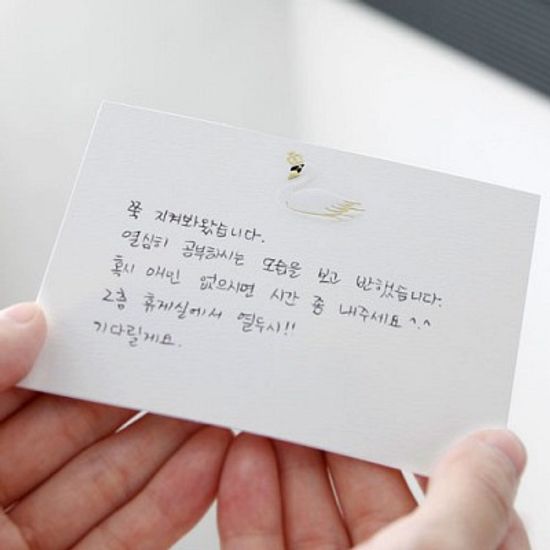 쭉 지켜봐왔습니다.
열심히 공부하시는 모습을 보고 반했습니다.
혹시 애인 없으시면 시간 좀 내주세요^.^
2층 휴게실에서 열두시!!
기다릴게요.